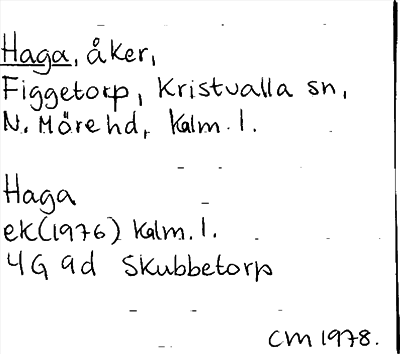 Haga, åker,
Figgetorp, Kristvalla sn,
N. Möre hd, Kalm. l.
Haga
ek(1976) Kalm. l.
4G 9d Skubbetorp
CM 1978.